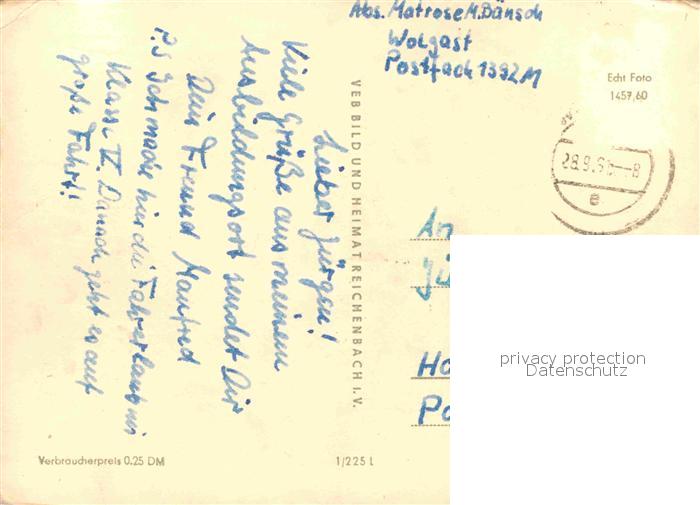 Abs. Matrose M. Dänsch
Wolgast
Postfach 1392M
Echt Foto
1457,60
28.9.6 -8
e
Lieber Jürgen!
Viele Grüße aus meinem
Ausbildungsort sendet Dir
Dein Freund Manfred
P.S Ich mache hier die Fahrerlaubnis
Klasse IV. Danach geht es auf
große Fahrt!
VEB BILD UND HEIMAT REICHENBACH I. V.
An
Jü
Ha
Po
privacy protection
Datenschutz
Verbraucherpreis 0.25 DM
1/225 L